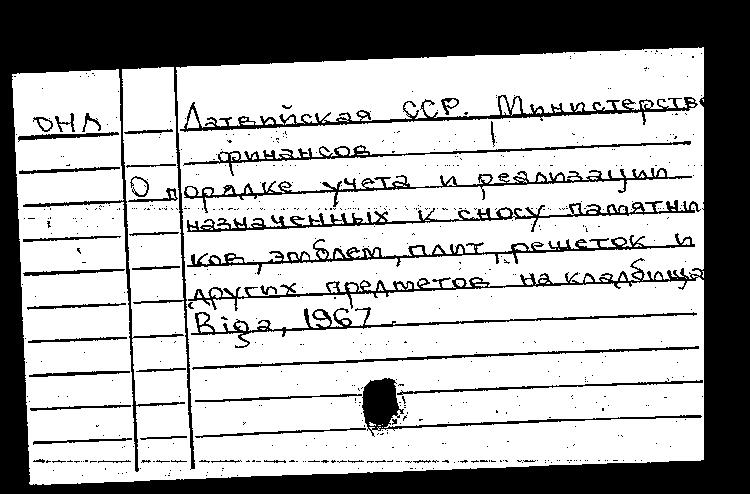 ОНЛ Латвийская ССР. Министерств
финансов
О порядке учета и реализации
назначенных к сносу памятни
ков, эмблем, плит, решеток и
других предметов на кладбища
Riga, 1967